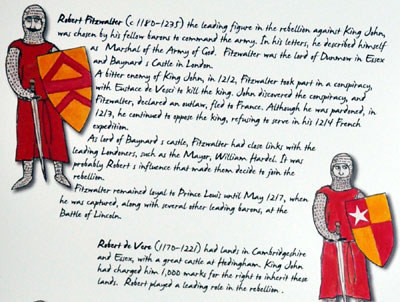 Robert Fitzwalter (c 1180-1235) the leading figure in the rebellion against King John,
was chosen by his fellow barons to command the army. In his letters, he described himself
as Marshal of the Army of God. Fitzwalter was the lord of Dunmow in Essex
and Baynard s Castle in London.
A bitter enemy of King John, in 1212, Fitzwalter took part in a conspiracy,
with Eustace de Vesci to kill the king. John discovered the conspiracy, and
Fitzwalter, declared an outlaw, fled to France. Although he was pardoned, in
1213, he continued to oppose the king, refusing to serve in his 1214 French
expedition.
As lord of Baynard s castle, Fitzwalter had close links with the
leading Londoners, such as the Mayor, William Hardel. It was
probably Robert s influence that made them decide to join the
rebellion.
Fitzwalter remained loyal to Prince Louis until May 1217, when
he was captured, along with several other leading barons, at the
Battle of Lincoln.
Robert de Vere (1170-1221) had lands in Cambridgeshire
and Essex, with a great castle at Hedingham. King John
had charged him 1,000 marks for the right to inherit these
lands. Robert played a leading role in the rebellion.